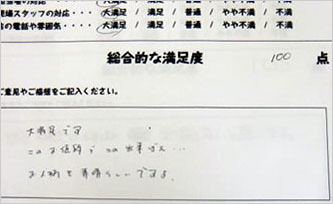 大満足 / 満足 / 普通 / やや不満 / 不満
現場スタッフの対応・・・ 大満足 / 満足 / 普通 / やや不満 / 不満
の電話や雰囲気・・・ 大満足 / 満足 / 普通 / やや不満 / 不満
総合的な満足度 100 点
ご意見やご感想をご記入ください。
大満足です
この お値段で この出来ばえ...
お人柄も素晴らしいですよ